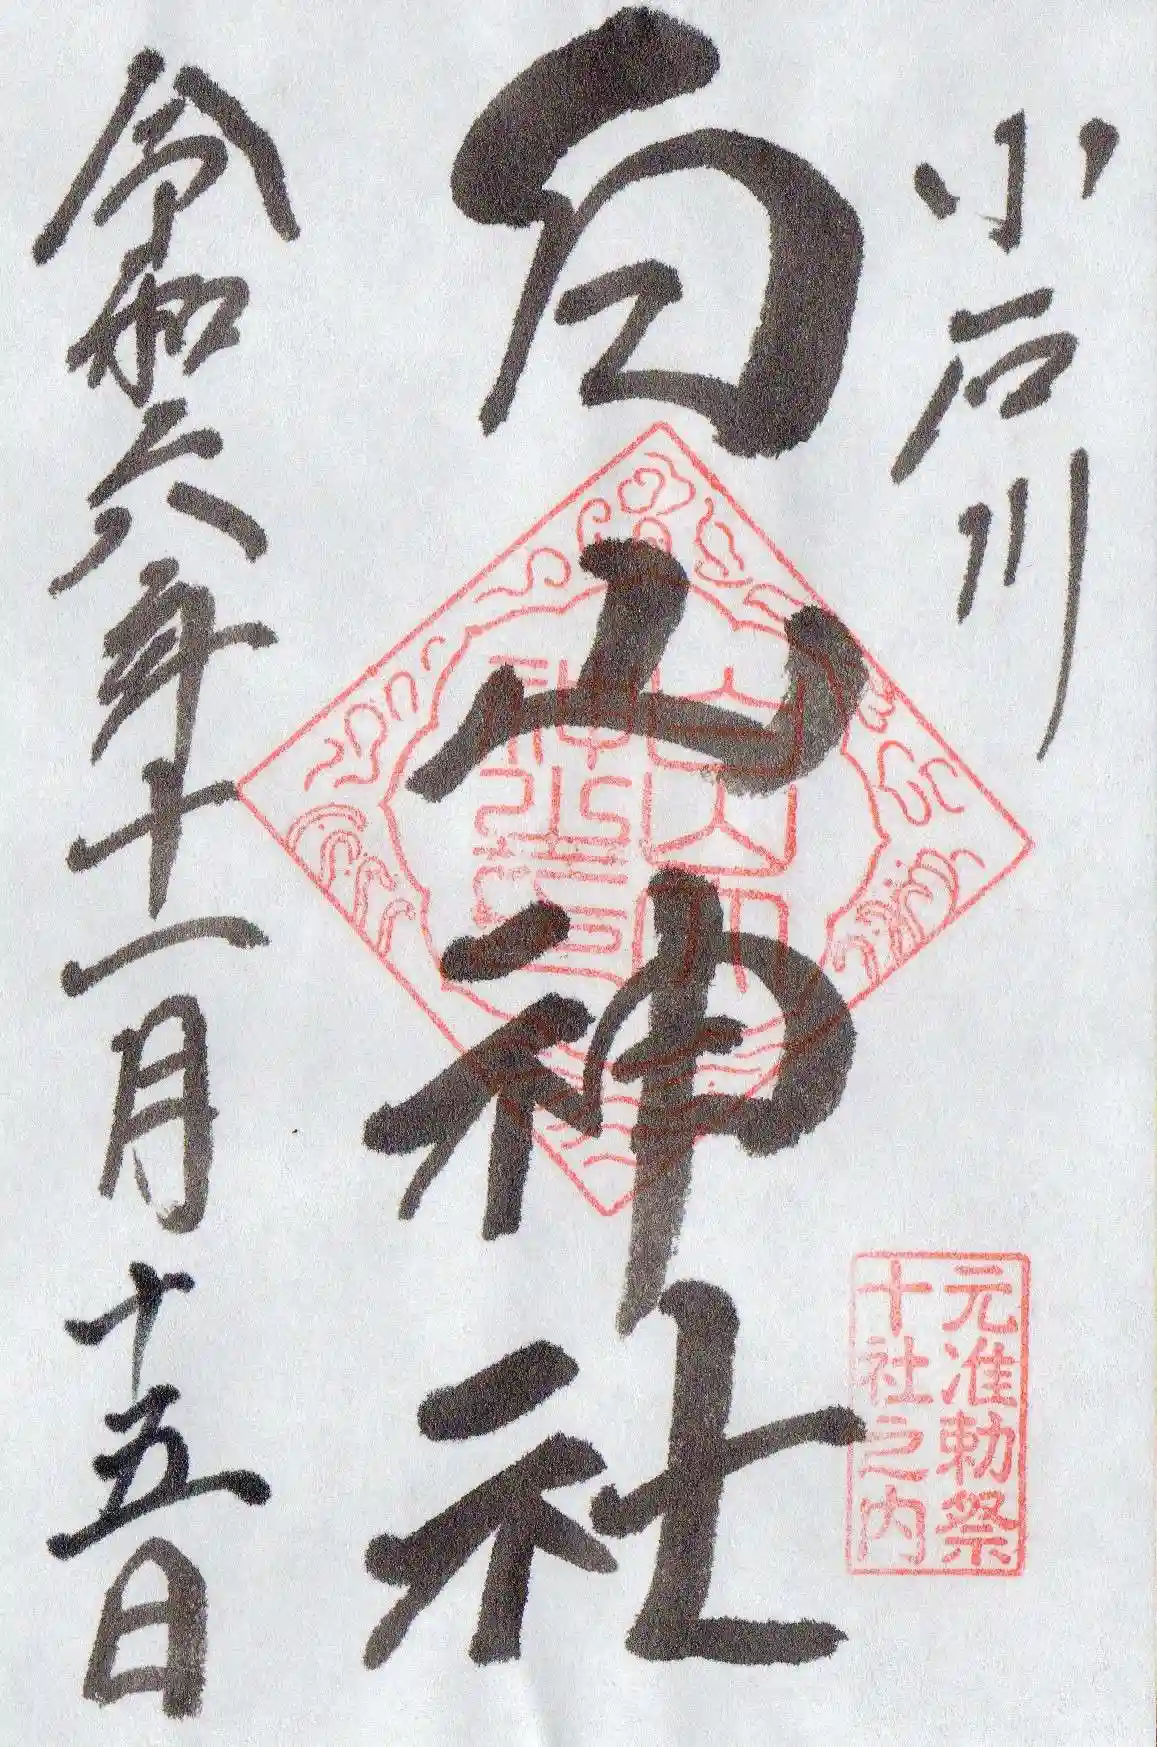 小石川
白山神社
令和六年十一月十五日
元准勅祭
十社之内